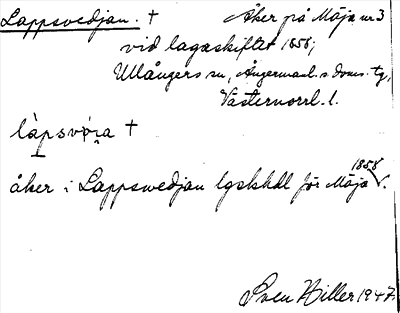 Lappsvedjan. † Åker på Mäja nr 3
vid lagaskiftet 1858;
Ullångers sn, Ångermanl. s doms. tg,
Västernorrl. l.
làpsvǝ́i̯a †
åker i Lappswedjan lgskhdl för Mäja 1858 V.
Sven Hiller 1947.